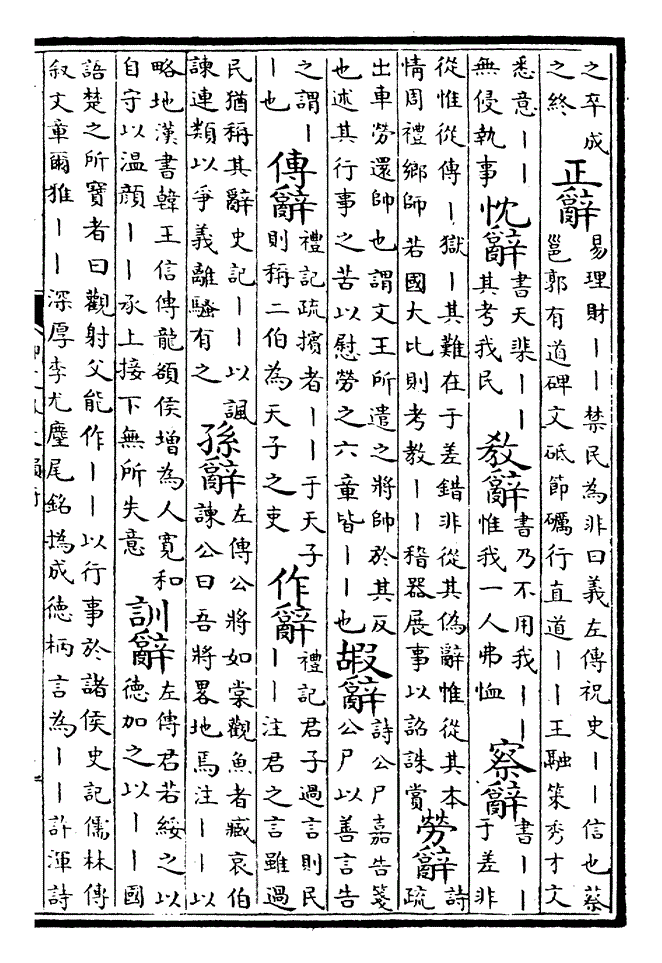 之卒成
之終
正辭
易理財丨丨禁民為非曰義左傳祝史丨丨信也蔡
邕郭有道碑文砥節礪行直道丨丨王融策秀才文
悉意丨丨
無侵執事
忱辭
書天棐丨丨
其考我民
教辭
書乃不用我丨丨
惟我一人弗恤
察辭
書丨丨
于差非
從惟從傳丨獄丨其難在于差錯非從其偽辭惟從其本
情周禮鄉師 若國大比則考教丨丨稽器展事以詔誅賞
勞辭
詩
疏
出車勞還帥也謂文王所遣之將帥於其反
也述其行事之苦以慰勞之六章皆丨丨也
嘏辭
詩公尸嘉告箋
公尸以善言告
之謂丨
丨也
傳辭
禮記疏擯者丨丨于天子
則稱二伯為天子之吏
作辭
禮記君子過言則民
丨丨注君之言雖過
民猶稱其辭史記丨丨以諷
諫連類以爭義離騷有之
孫辭
左傳公將如棠觀魚者臧哀伯
諫公曰吾將畧地焉注丨丨以
略地漢書韓王信傳龍頟侯增為人寬和
自守以温顔丨丨承上接下無所失意
訓辭
左傳君若綏之以
德加之以丨丨國
語楚之所寶者曰觀射父能作丨丨以行事於諸侯史記儒林傳
叙文章爾雅丨丨深厚李尤麈尾銘撝成德柄言為丨丨許渾詩